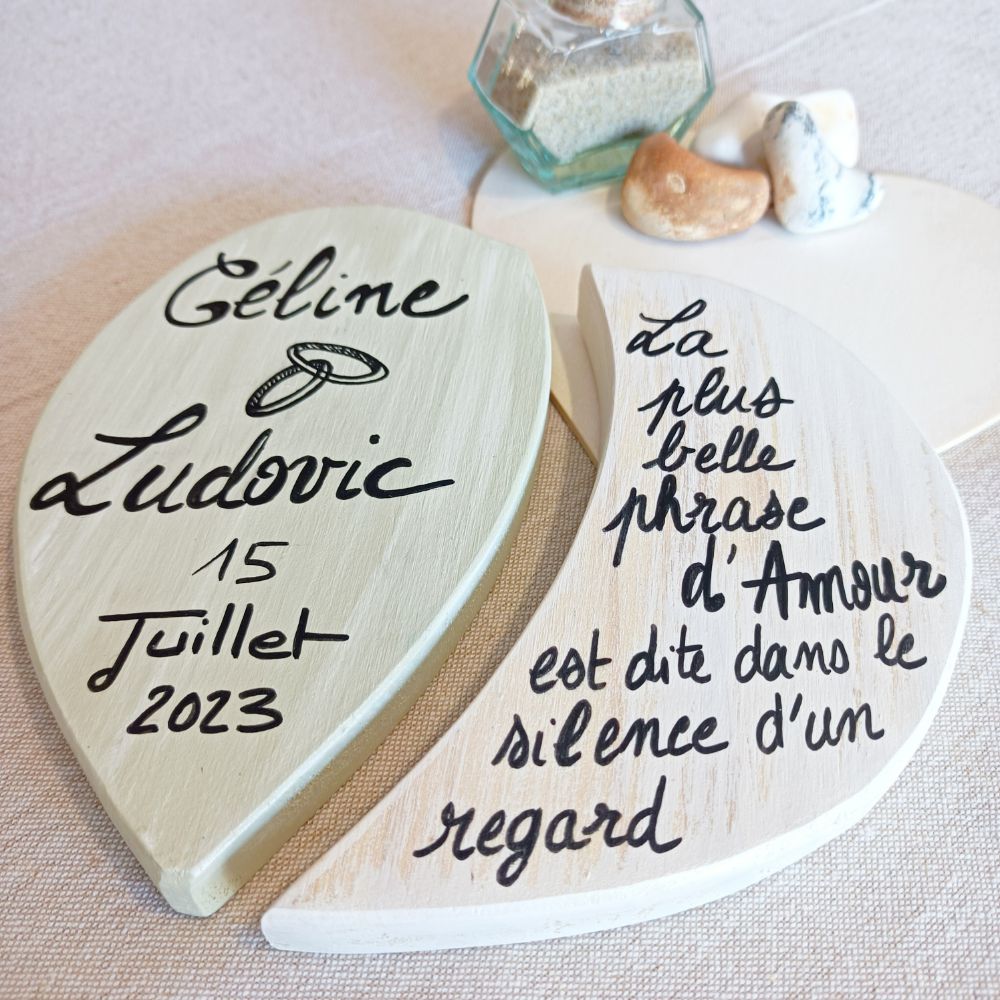 Céline
Ludovic
15
Juillet
2023
La
plus
belle
phrase
d'Amour
est dite dans le
silence d'un
regard